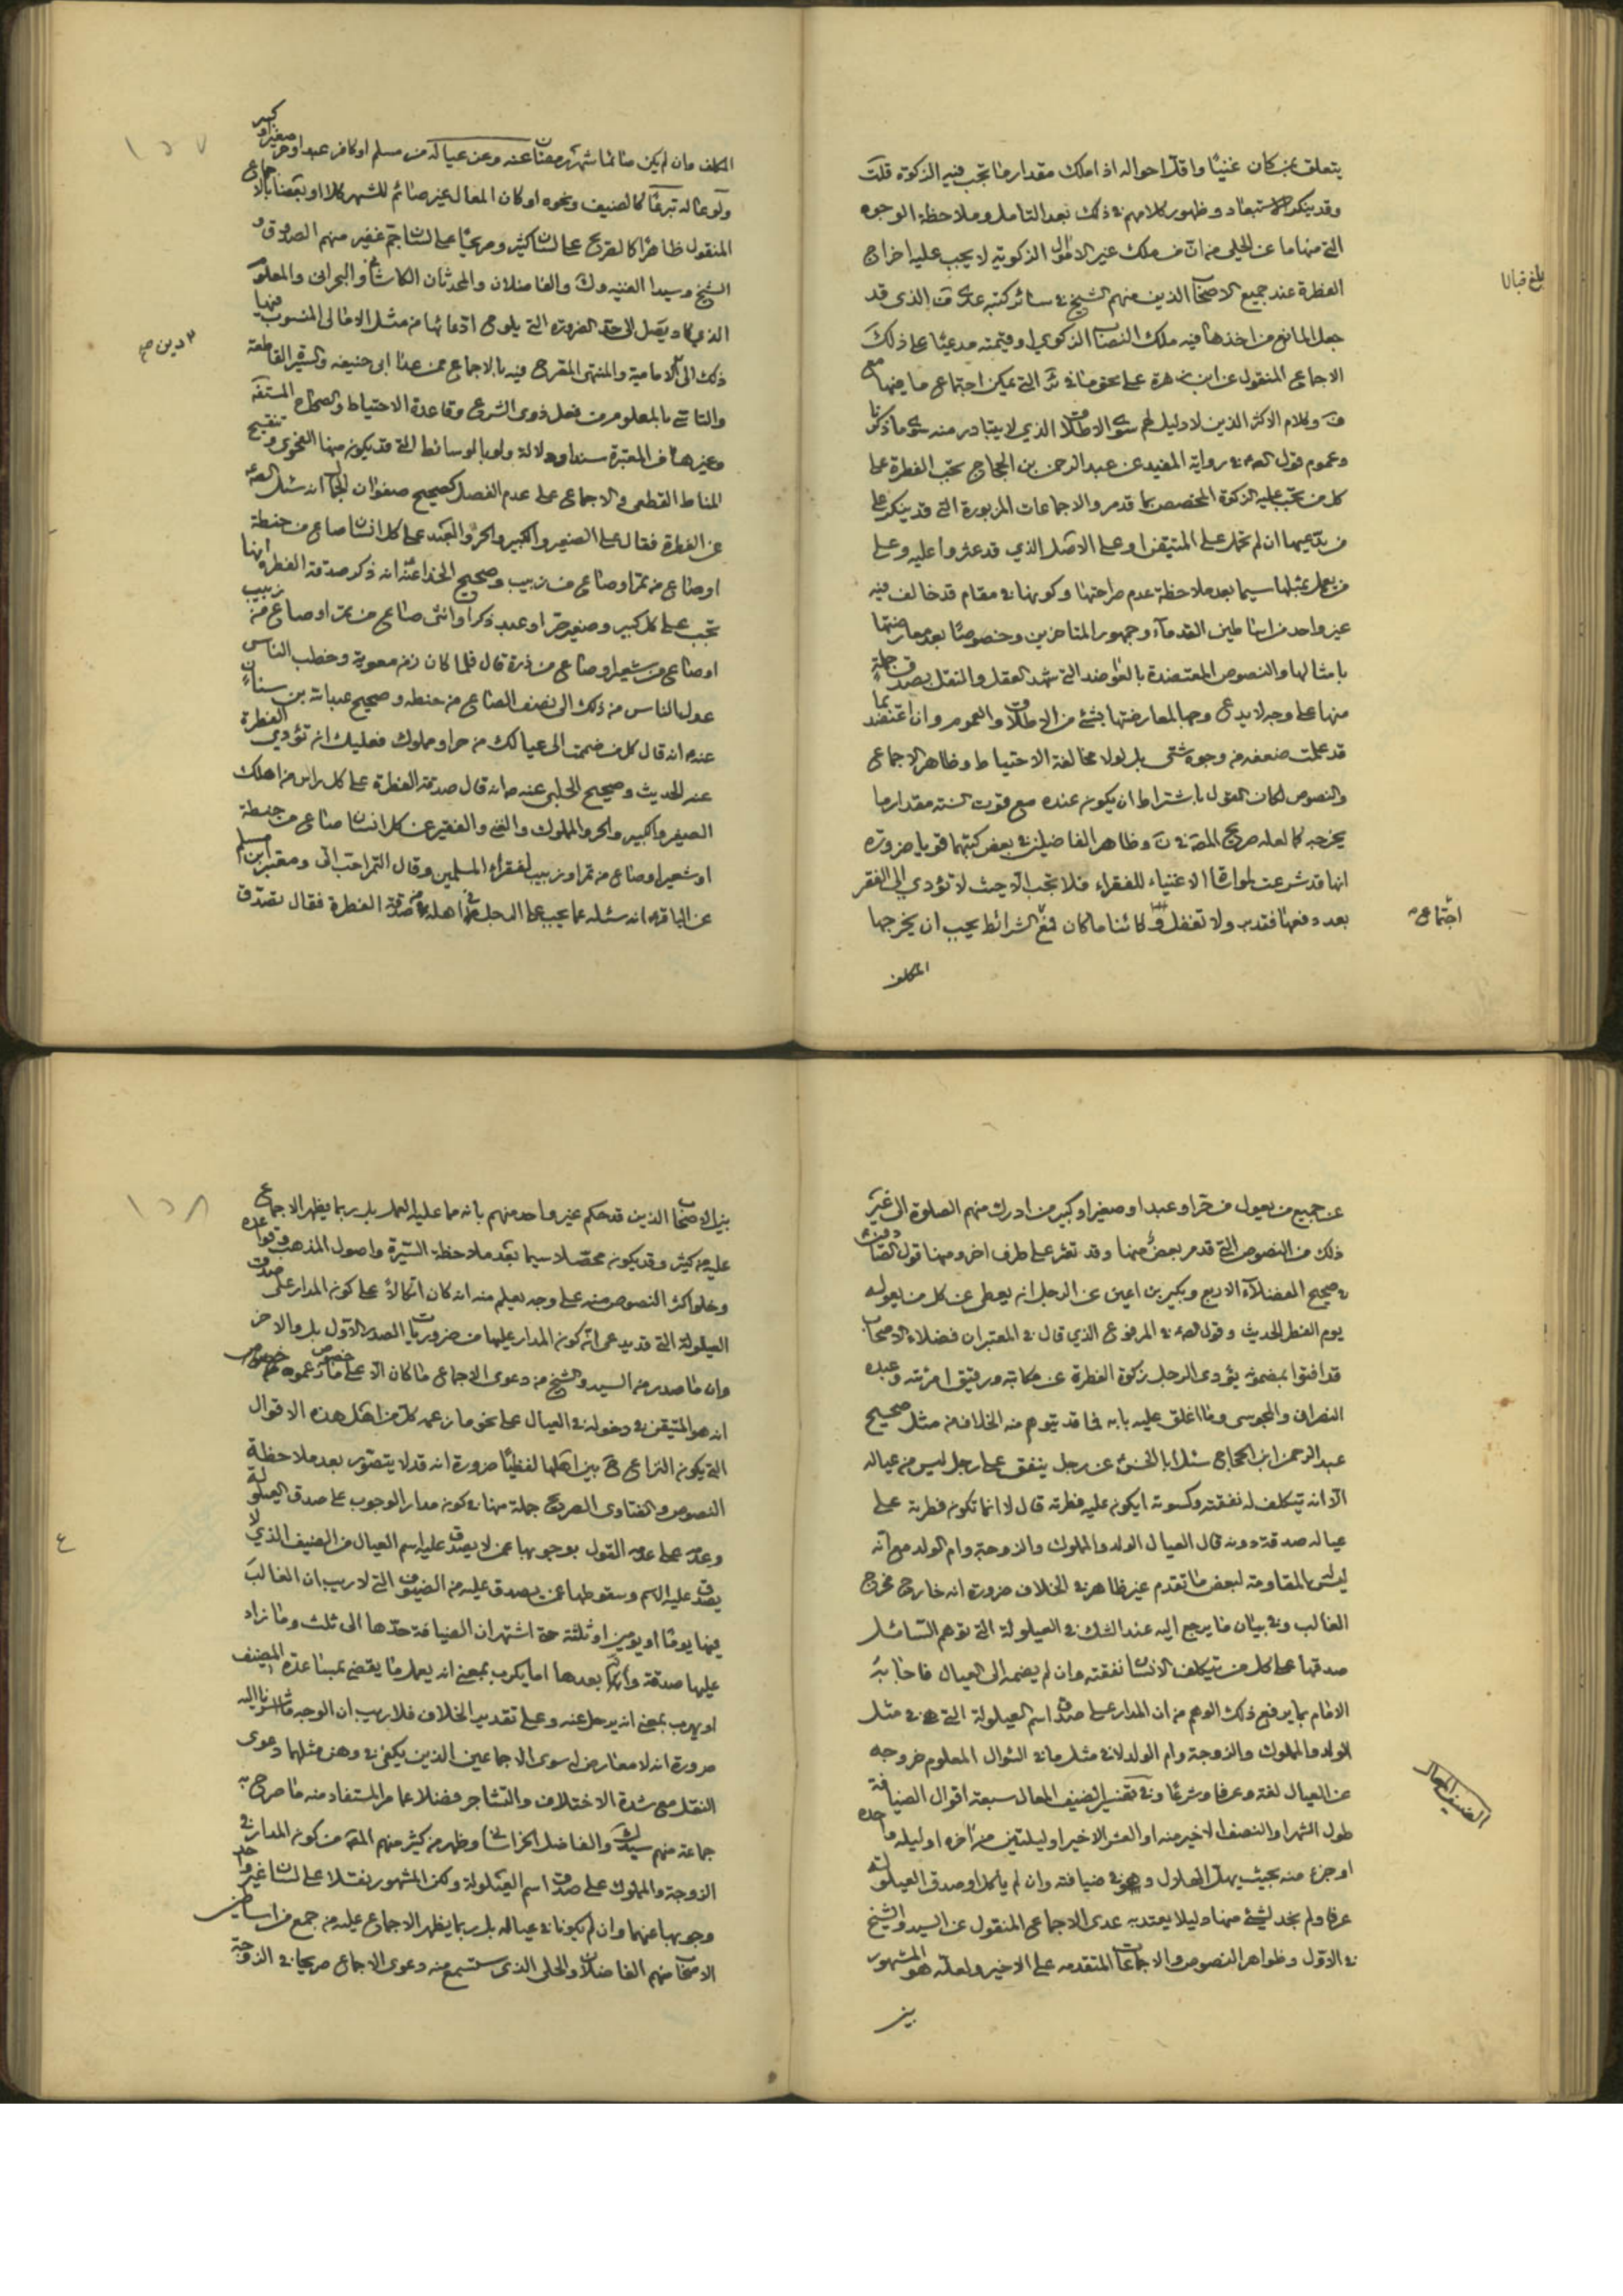 يتعلق بمن كان غنيا واقل احواله اذا ملك مقدار ما تجب فيه الزكوة قلت
وقد ينكر الاستبعاد وظهور كلامهم في ذلك بعد التامل وملاحظة الوجوه
التي منها ما عن الحلي من ان من ملك غير الاموال الزكوتيه لا يجب عليه اخراج
الفطرة عند جميع الاصحاب الذين منهم الشيخ في سائر كتبه عدى ف الذي قد
جعل المانع من اخذها فيه ملك النصاب الزكوي او قيمته مدعيا على ذلك
الاجماع المنقول عن ابن زهرة على نحو ما في التي يمكن اجتماع ما فيها مع
ف وكلام الاكثر الذين لا دليل لهم سوى الاطلاق الذي لا يتبادر منه سوى ما ذكرنا
وعموم قول الصم في رواية المفيد عن عبد الرحمن بن الحجاج تجب الفطرة على
كل من تجب عليه الزكوة المخصص بما قد مر والاجماعات المزبورة التي قد ينكر على
من يدعيها ان لم تحمل على المتيقن او على الاصل الذي قد عثروا عليه وعلى
من يعمل بمثلها سيما بعد ملاحظة عدم صراحتها وكونها في مقام قد خالف فيه
غير واحد من اساطين القدماء وجمهور المتاخرين وخصوصا بعد معارضتها
بامثالها والنصوص المعتضدة بالعواضد التي شهد العقل والنقل بصدق جملة
منها على وجه لا يدعى وجها لمعارضتها بشئ من الاطلاق والعموم وان اعتضد بما
قد علمت ضعفه من وجوه شتى بل لولا مخالفة الاحتياط وظاهر الاجماع
والنصوص لكان القول باشتراط ان يكون عنده مع قوت السنة مقدار ما
يخرجه كما لعله صريح المقة في ن وظاهر الفاضلين في بعض كتبهما قويا ضرورة
انها قد شرعت لمواساة الاغنياء للفقراء فلا تجب الا حيث لا تؤدي الى الفقر
بعد دفعها فتدبر ولا تغفل و كائنا ما كان فمع الشرائط يجب ان يخرجها
المكلف
بلغ قبالا
اجتماع
المكلف وان لم يكن صائما شهر رمضان عنه وعن عياله من مسلم او كافر عبدا وحر صغيرا وكبير
ولو عاله تبرعا كالضيف ونحوه او كان المعال غير صائم للشهر كلا او بعضا بالاجماع
المنقول ظاهرا كالصريح على لسان كثير وصريحا على لسان جم غفير منهم الصدوق و
الشيخ وسيدا الغنيه وك والفاضلان والمحدثان الكاشاني والبحراني والمعلوم
الذي كاد يصل الى حد الضرورة التي يلوح ادعائها من مثل الامالي المنسوب فيها
ذلك الى دين الامامية والمنتهى المصرح فيه بالاجماع ممن عدا ابي حنيفه والسيرة القاطعة
والتاسي بالمعلوم من فعل ذوي الشرع وقاعدة الاحتياط والصحاح المستفه
وغيرها من المعتبرة سندا ودلالة ولو بالوسائط التي قد يكون منها الفحوى وتنقيح
المناط القطعي والاجماع على عدم الفصل كصحيح صفوان الجمال انه سئل الصم
عن الفطرة فقال على الصغير والكبير والحر والعبد عن كل انسان صاع من حنطة
او صاع من تمر او صاع من زبيب وصحيح الحذاء عنه انه ذكر صدقة الفطرة انها
تجب على كل كبير وصغير حر او عبد ذكر او انثى صاع من تمر او صاع من زبيب
او صاع من شعير او صاع من ذرة قال فلما كان زمن معوية وخطب الناس
عدل الناس من ذلك الى نصف الصاع من حنطه وصحيح عبد الله بن سنان
عنه انه قال كل من ضممت الى عيالك من حر او مملوك فعليك ان تؤدي الفطرة
عنه الحديث وصحيح الحلبي عنه انه قال صدقة الفطرة على كل راس من اهلك
الصغير والكبير والحر والمملوك والغني والفقير عن كل انسان صاع من حنطة
او شعير او صاع من تمر او زبيب لفقراء المسلمين وقال التمر احب الي ومعتبر ابن مسلم
عن الباقر انه سئله عما يجب على الرجل في اهله من صدقة الفطرة فقال تصدق
١٥٧
عن جميع من يعول من حر او عبد او صغير او كبير من ادرك منهم الصلوة الى غير
ذلك من النصوص التي قد مر بعض منها وقد تعثر على طرف اخر ومنها قول الصادقين
في صحيح الفضلاء الاربع وبكير بن اعين عن الرجل انه يعطي عن كل من يعوله
يوم الفطر الحديث وقول الصم في المرفوع الذي قال في المعتبر ان فضلاء الاصحاب
قد افتوا بمضمونه يؤدي الرجل زكوة الفطرة عن مكاتبه ورقيق امرئته وعبده
النصراني والمجوسي وما اغلق عليه بابه فما قد يتوهم منه الخلاف من مثل صحيح
عبد الرحمن ابن الحجاج سئل ابا الحسن عن رجل ينفق على رجل ليس من عياله
الا انه يتكلف له نفقته وكسوته ايكون عليه فطرته قال لا انما تكون فطرته على
عياله صدقة دونه قال العيال الولد والمملوك والزوجة وام الولد مع انه
ليس بالمقاومة لبعض ما تقدم غير ظاهر في الخلاف ضرورة انه خارج مخرج
الغالب وفي بيان ما يرجع اليه عند الشك في العيلولة التي توهم السائل
صدقها على كل من يتكلف الانسان نفقته وان لم يضمه الى العيال فاجابه
الامام بما يرفع ذلك الوهم من ان المدار على صدق اسم العيلولة التي هي في مثل
الولد والمملوك والزوجة وام الولد لا في مثل ما في السؤال المعلوم خروجه
عن العيال لغة وعرفا وشرعا وفي تفسير الضيف المعال سبعة اقوال الضيافة
طول الشهر او النصف الاخير منه او العشر الاخير او ليلتين من اخره او ليلة ما
او جزء منه بحيث يهل الهلال وهو في ضيافته وان لم ياكل او صدق العيلولة
عرفا ولم نجد لشئ منها دليلا يعتد به عدى الاجماع المنقول عن السيد والشيخ
في الاول وظواهر النصوص والاجماعات المتقدمه على الاخير ولعله هو المشهور
بين
الضيف المعال
بين الاصحاب الذين قد حكم غير واحد منهم بانه مما عليه العمل بل ربما يظهر الاجماع
عليه من كثير وقد يكون محصلا سيما بعد ملاحظة السيرة واصول المذهب وقواعده
وخلو اكثر النصوص منه على وجه يعلم منه انه كان اتكالا على كون المدار على صدق
العيلولة التي قد يدعى انه كون المدار عليها من ضروريات الصدر الاول بل والاخر
وان ما صدر من السيد والشيخ من دعوى الاجماع ما كان الا على ما زعموه
انه هو المتيقن في دخوله في العيال على نحو ما زعمه كل من اهل هذه الاقوال
التي يكون النزاع ح بين اهلها لفظيا ضرورة انه قد لا يتصور بعد ملاحظة
النصوص والفتاوى الصريح جملة منها في كون مدار الوجوب على صدق العيلولة
وعدمه على عدمه القول بوجوبها عمن لا يصدق عليه اسم العيال من الضيف الذي لا
يصدق عليه الاسم وسقوطها عمن يصدق عليه من الضيوف التي لا ريب ان الغالب
فيها يوما او يومين او ثلثة حتى اشتهر ان الضيافة حدها الى ثلث وما زاد
عليها صدقة وانه بعدها اما يكرب بمعنى انه يعمل ما يقضي بمساعدة المضيف
او يهرب بمعنى انه يرحل عنه وعلى تقدير الخلاف فلا ريب ان الوجه ما اشرنا اليه
ضرورة انه لا معارض له سوى الاجماعين الذين يكفي في وهن مثلهما دعوى
النقل مع شدة الاختلاف والتشاجر فضلا عما مر المستفاد منه ما صرح به
جماعة منهم سيد ك والفاضل الخراساني وظهر من كثير منهم المقة من كون المدار في
الزوجة والمملوك على صدق اسم العيلولة ولكن المشهور نقلا على لسان غير واحد
وجوبها عنهما وان لم يكونا في عياله بل ربما يظهر الاجماع عليه من جمع من اساطين
الاصحاب منهم الفاضلان والحلي الذي ستسمع منه دعوى الاجماع صريحا في الزوجة
١٥٨
ع